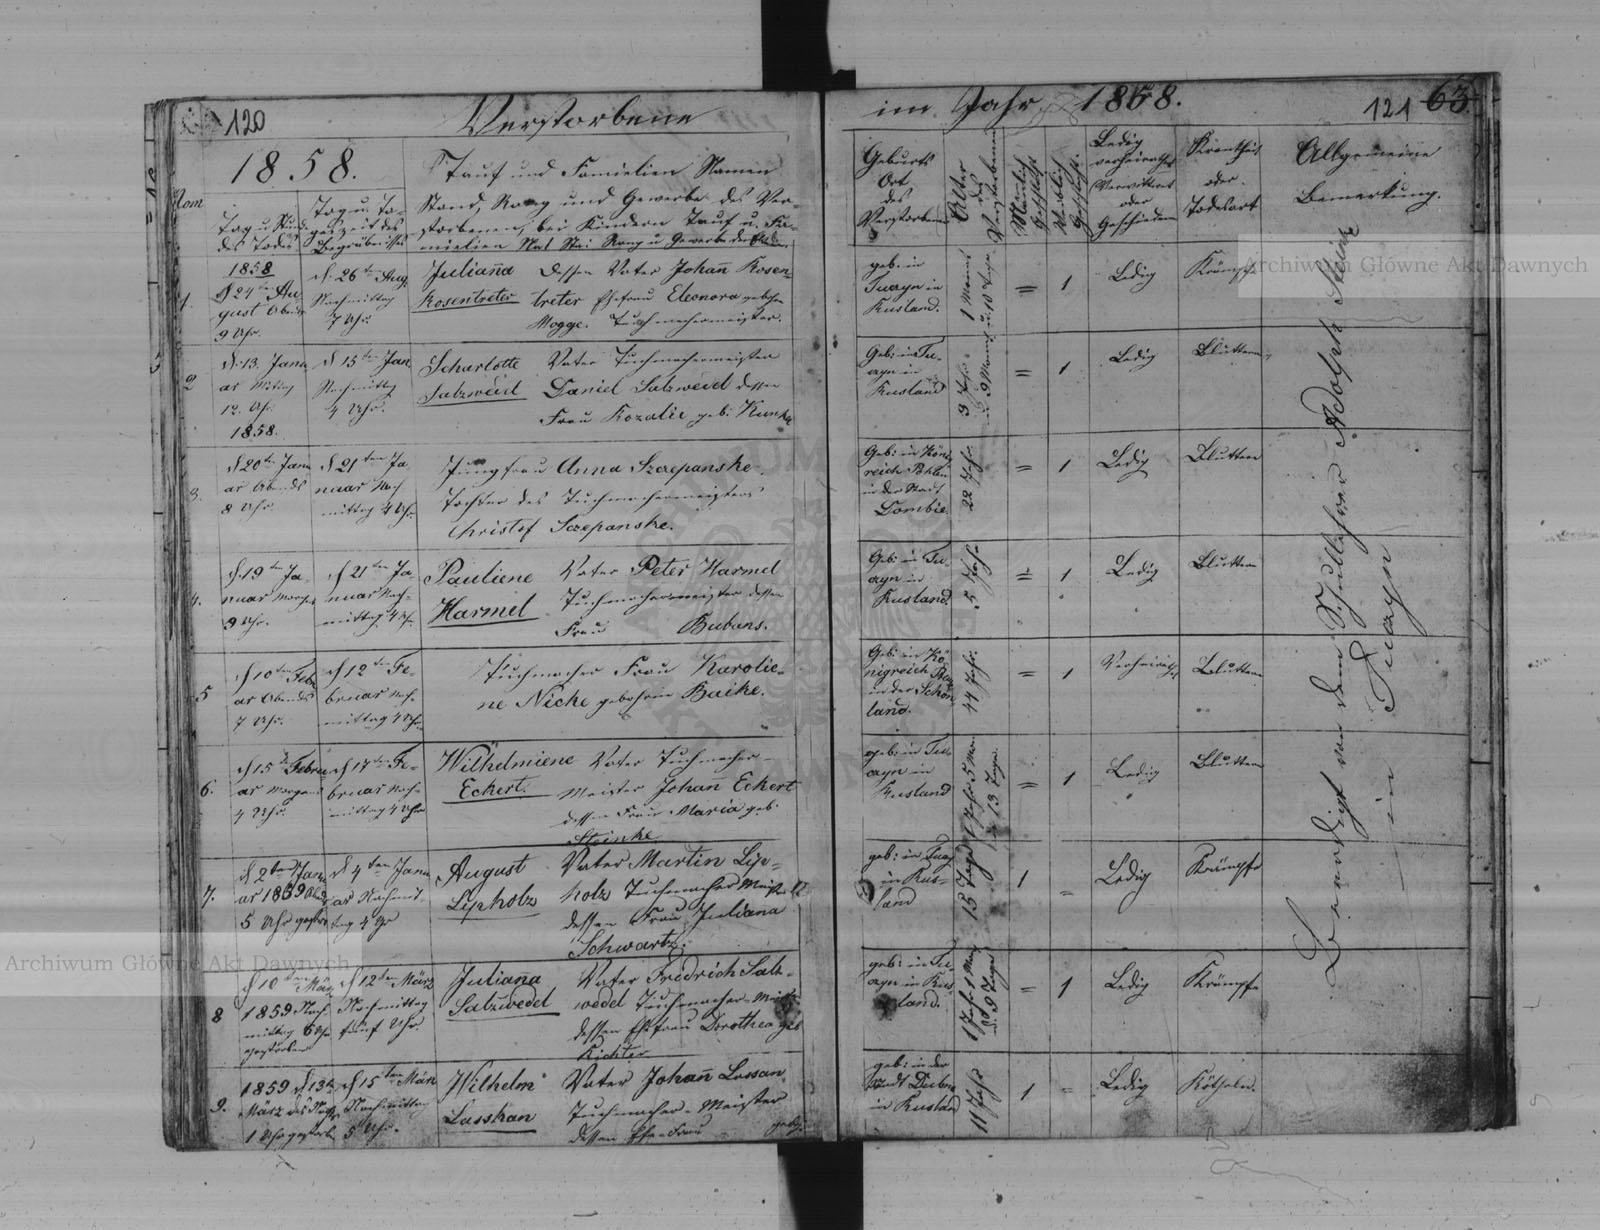 120 Verstorbene
im Jahr 1858.
121 63.
1858.
Nom
Tag u Stunde
des Todes
Tag u. Ta-
geszeit des
Begräbnisses
Tauf und Familien Namen
Stand, Rang und Gewerbe des Ver-
storbenen, bei Kindern Tauf u. Fa-
milien
Rang u Gewerbe der Eltern
Geburts
Ort
des
Verstorbenen
Alter
des
Verstorbenen
Männlich
Geschlecht
Weiblich
Geschlecht.
Ledig
verheirathet
Verwittwet
oder
Geschieden
Krankheit
oder
Todesart
Allgemeine
Bemerkung.
1.
1858
d 24ten Au-
gust Abends
9 Uhr.
d. 26ten Aug.
Nachmittag
7 Uhr.
Juliaña
Rosentreter
Dessen Vater Johañ Rosen-
treter Ehefrau Eleonora geboh.
Mogge. Tuchmachermeister.
geb: in
Tuczyn in
Rusland.
1 Monat
u. 10 Tage
= 1 Ledig Krämpfe
2
d. 13. Janu
ar Mittag
12. Uhr
1858.
d 15ten Jan
Nachmittag
4 Uhr.
Scharlotte
Salzweid
Vater Tuchmachermeister
Daniel Salzweid dessen
Frau Rozalie geb:
Geb: in Tu-
czyn in
Rusland
3 Jahr
u. 9 Monat
= 1 Ledig Bluttern
3.
d 20ten Janu
ar Abends
8 Uhr
d 21ten Ja-
nuar Nach
mittag 4 Uhr.
Jungfrau Anna Szczepanske.
Tochter des Tuchmachermeisters
Christof Sczepanske.
Geb: in König
reich Pohlen
in der Stadt
Dombie.
22 Jahr
= 1 Ledig Bluttern
4.
d 19ten Ja-
nuar Morgens
9 Uhr.
d 21ten Ja-
nuar Nach-
mittag 4 Uhr.
Pauliene
Harmel
Vater Peter Harmel
Tuchmachermeister dessen
Frau Bubans.
Geb: in Tu-
czyn in
Rusland.
5 Jahr
= 1 Ledig Bluttern
5
d 10ten Febru
ar Abends
7 Uhr.
d 12ten Fe-
bruar Nach-
mittag 4 Uhr.
Tuchmacher Frau Karolie-
ne Nicke gebohrne Baike.
Geb: in Kö-
nigreich
in der Schön
land.
44 Jahr.
= 1 Verheirath. Bluttern
6.
d 15ten Febru
ar Morgens
4 Uhr.
d 17ten Fe-
bruar Nach-
mittag 4 Uhr
Wilhelmiene
Eckert.
Vater Tuchmacher-
Meister Johañ Eckert
dessen Frau Maria geb:
Steinke
geb: in Tu-
czyn in
Rusland
1 Jahr 5 Mon
u. 13 Tage.
= 1 Ledig Bluttern
7.
d 2ten Janu
ar 1859
5 Uhr gestorb.
d 4ten Janu
ar Nachmit-
tag 4 Uhr
August
Lipholz
Vater Martin Lip-
holz Tuchmacher Meister
dessen Frau Juliana
Schwartz.
geb: in Tucz
in Rus-
land
15 Tage
1 = Ledig Krämpfe
8
d 10ten März
1859 Nach
mittag 6 Uhr
gestorben
d 12ten März
Nachmittag
fünf Uhr
Juliaña
Salzwedel
Vater Fridrich Salz-
wedel Tuchmacher-Meister
dessen Ehefrau Dorothea geb
Richter
geb: in Tu-
czyn in Rus
land.
1 Jahr 1 Mon
u. 9 Tage
= 1 Ledig Krämpfe
9.
1859 d 13ten
März des Nachts
1 Uhr gestorb.
d 15ten März
Nachmittag
5 Uhr.
Wilhelm
Lasshan
Vater Johañ Lassan
Tuchmacher-Meister
dessen Ehe-Frau geb:
geb: in der
Stadt
in Rusland
11 Jahr
1 = Ledig
Beerdigt von dem Schullehrer Adolph
in Tuczyn
Archiwum Główne Akt Dawnych
Archiwum Główne Akt Dawnych